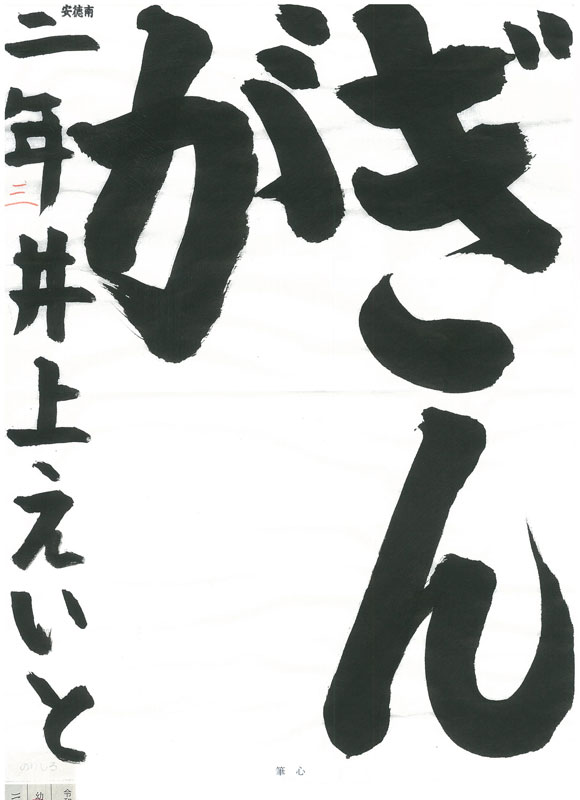 ぎん
が
二年井上えいと
三
安徳南
筆心
のりしろ